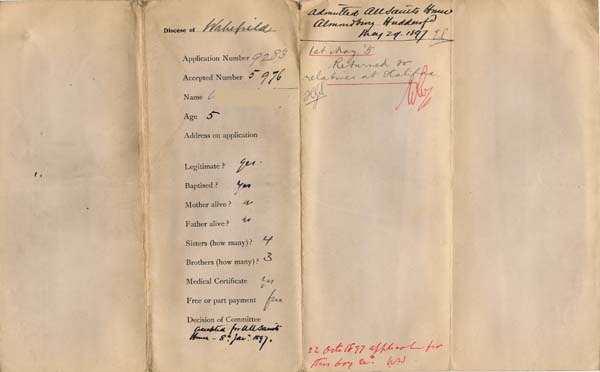 Diocese of Wakefield
Application Number 9293
Accepted Number 5976
Name
Age 5
Address on application
Legitimate? Yes.
Baptised? Yes
Mother alive? no
Father alive? no
Sisters (how many)? 4
Brothers (how many)? 3
Medical Certificate yes
Free or part payment free
Decision of Committee
accepted for All Saints
Home - 5th Jan. 1897.
Admitted All Saints Home
Almondbury Huddersfd
May 29. 1897
1st May
Returned to
relatives at Halifax.
22 Octr 1897 application for
this boy